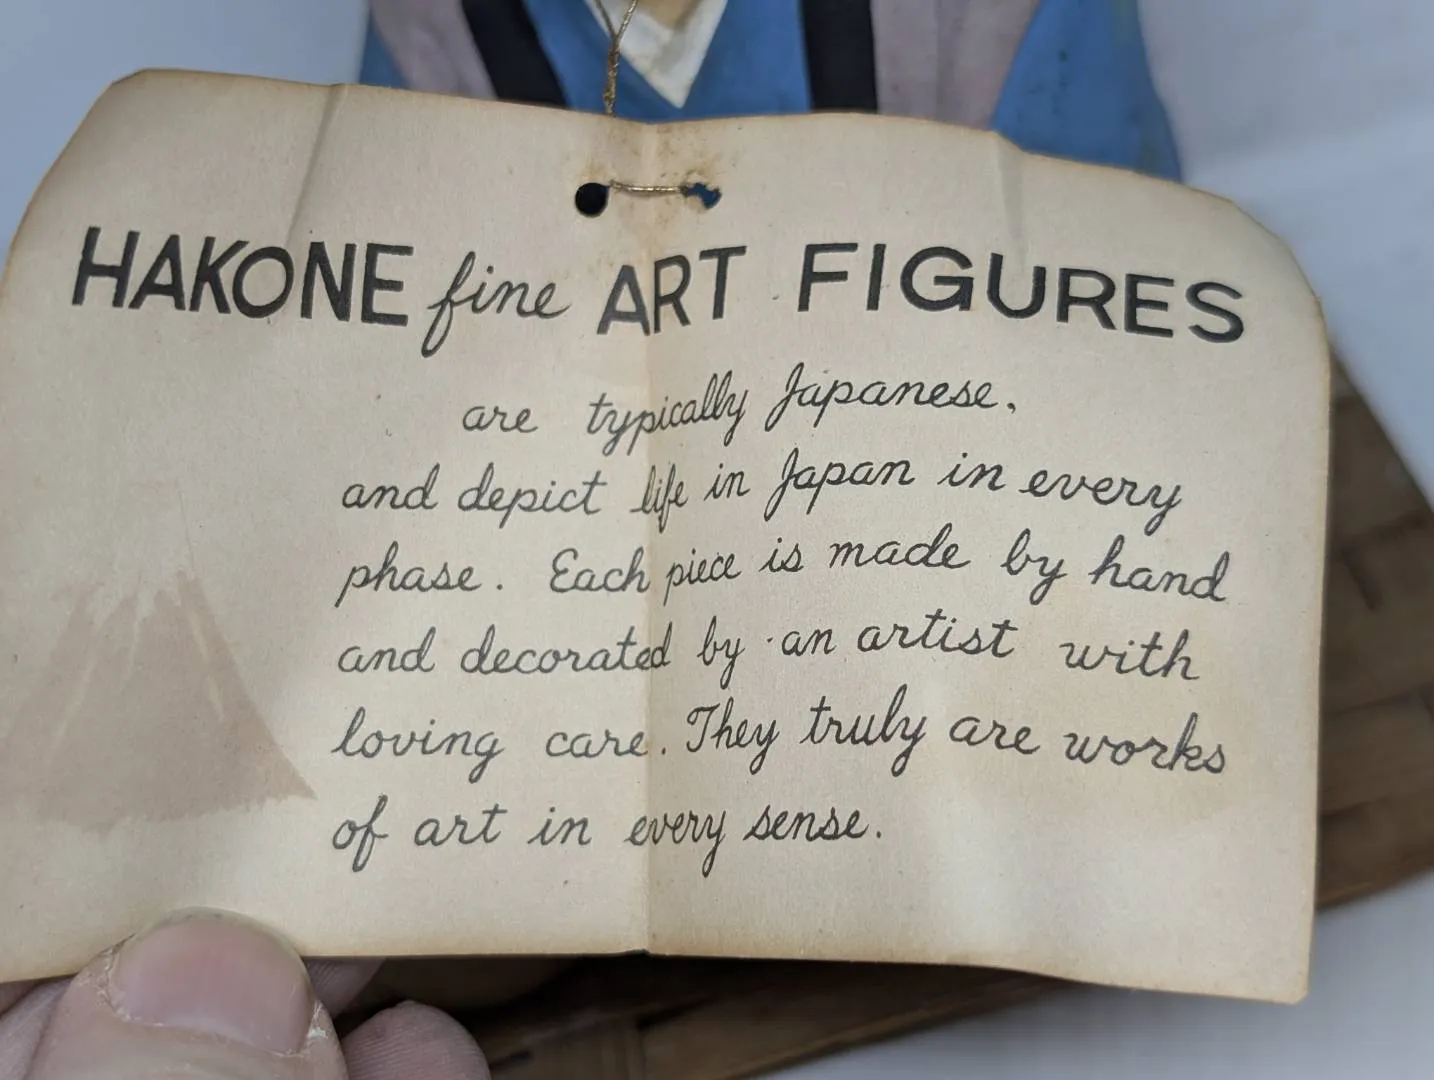 HAKONE fine ART FIGURES
are typically Japanese.
and depict life in Japan in every
phase. Each piece is made by hand
and decorated by an artist with
loving care. They truly are works
of art in every sense.